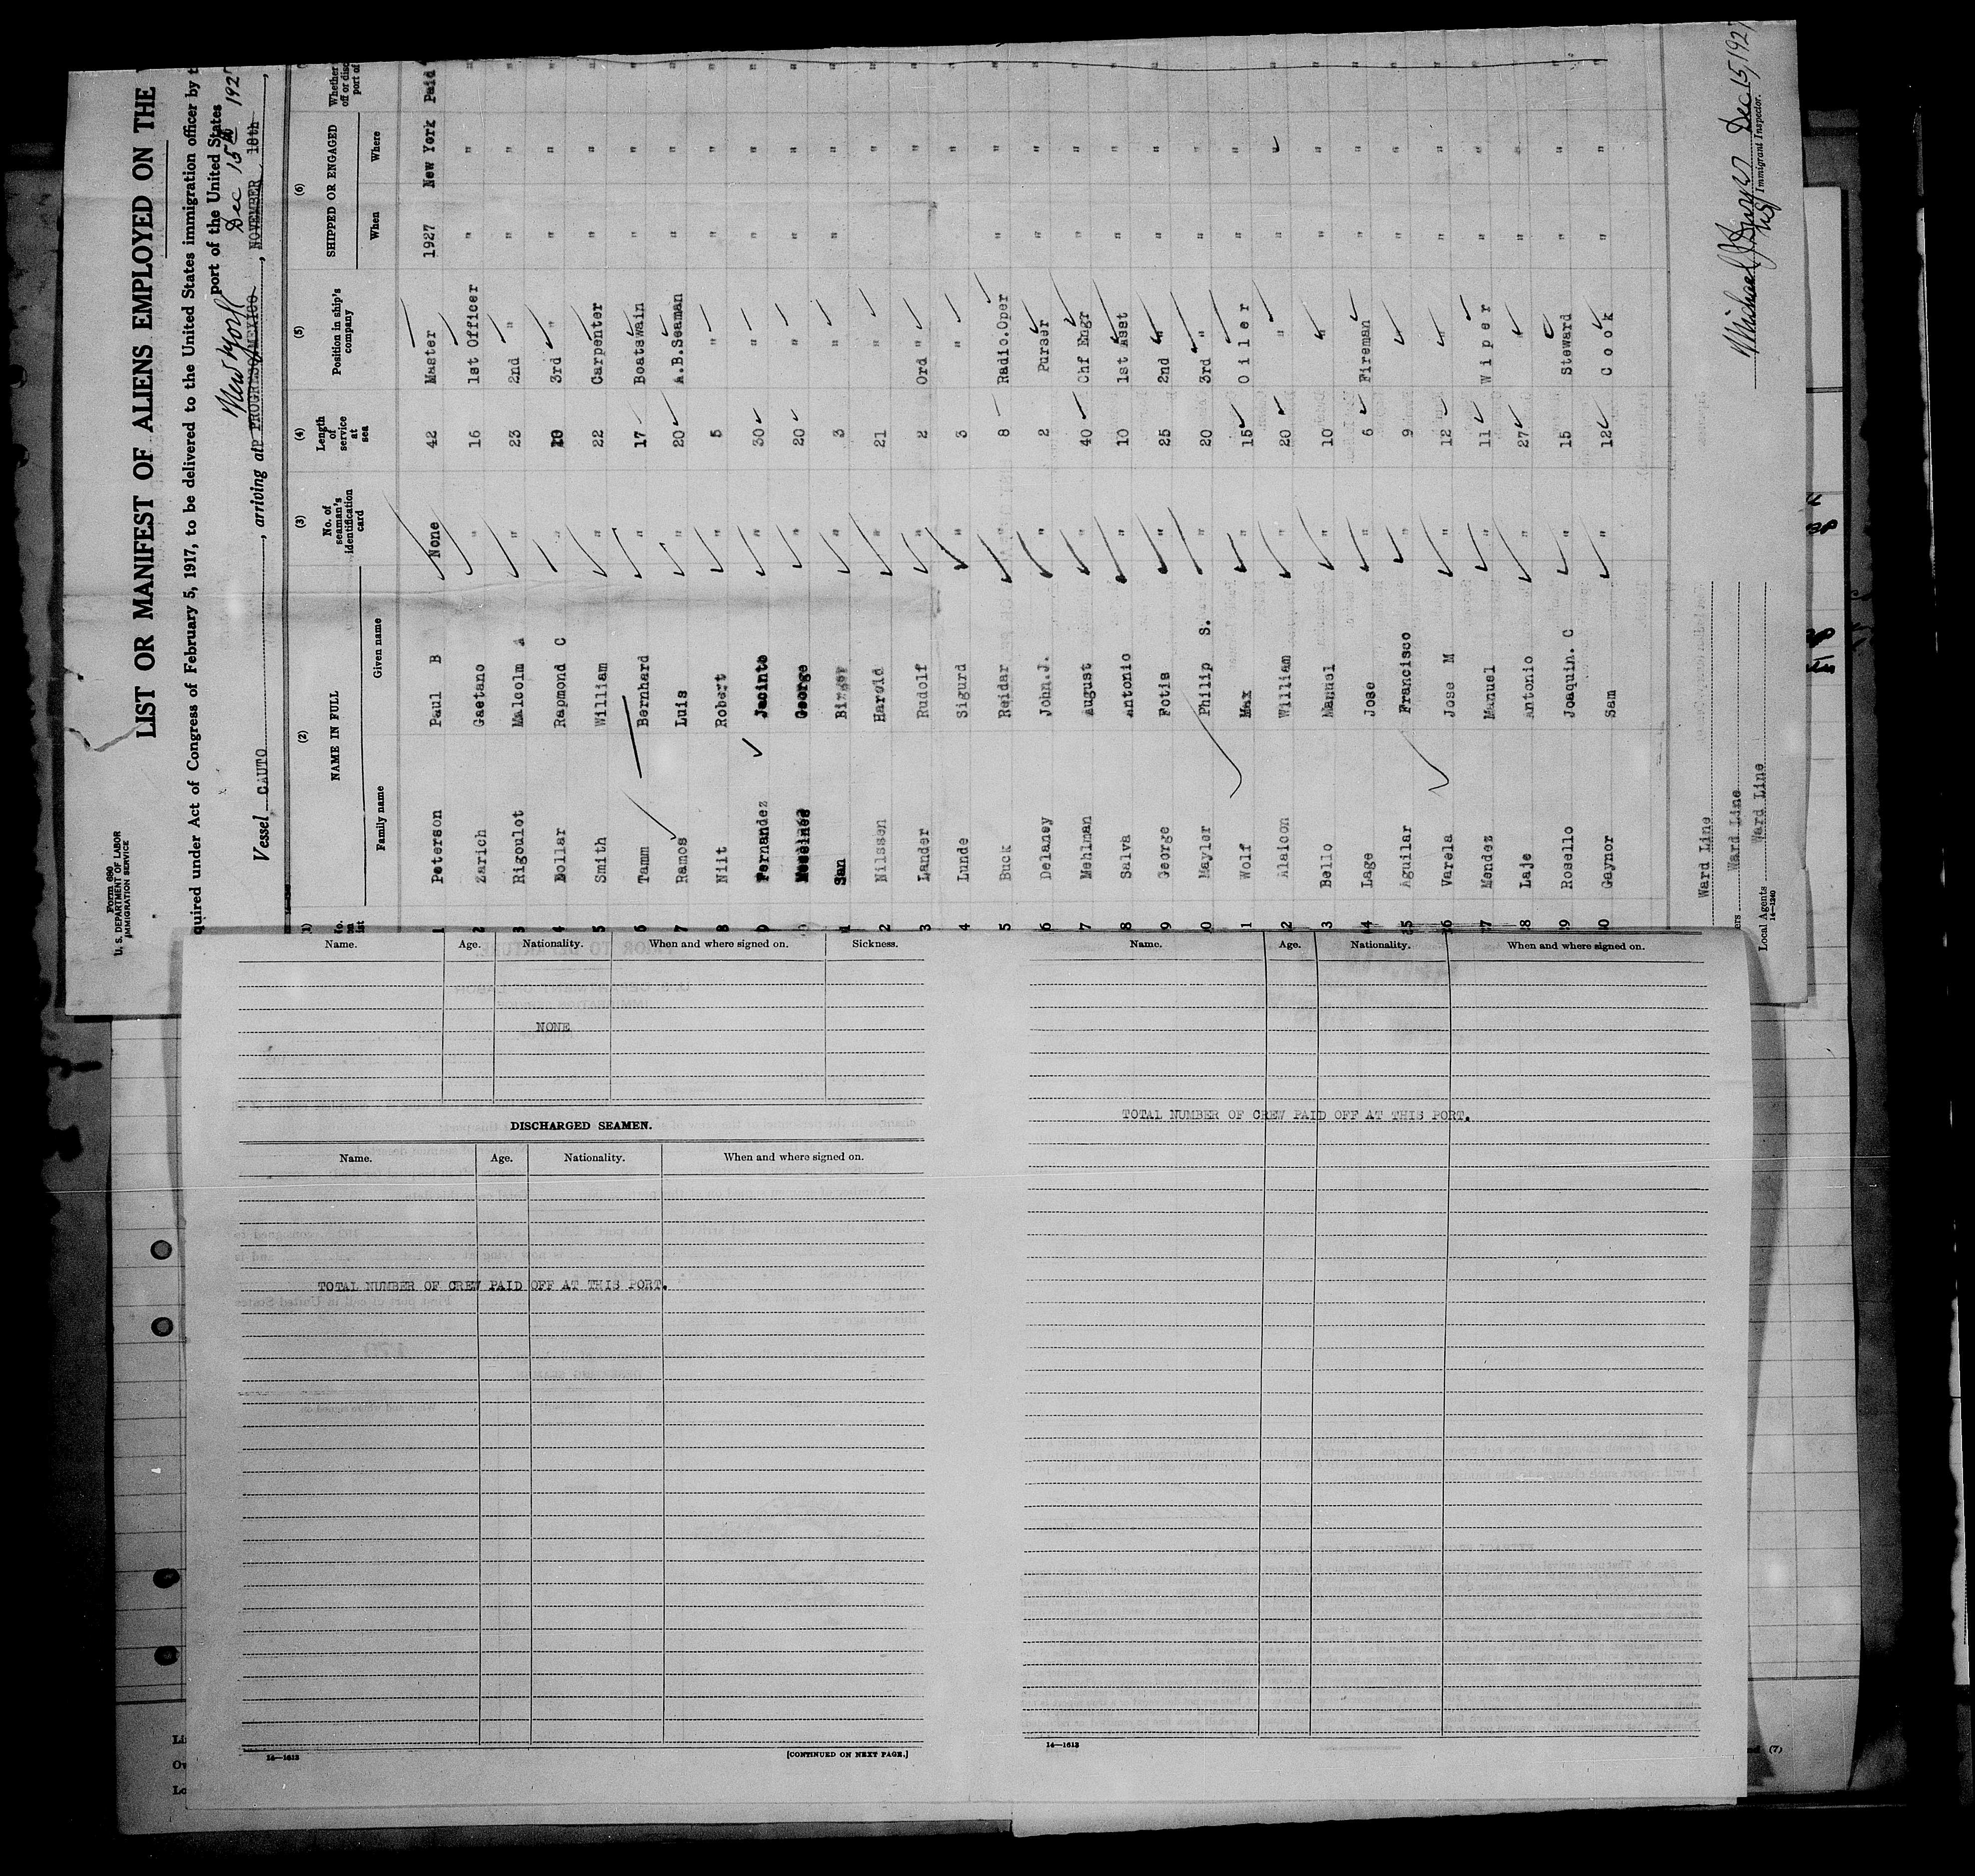 Form 680
U. S. DEPARTMENT OF LABOR
IMMIGRATION SERVICE
LIST OR MANIFEST OF ALIENS EMPLOYED ON THE
quired under Act of Congress of February 5, 1917, to be delivered to the United States immigration officer by t
port of the United States
New York Dec 15th 192
Vessel CAUTO, arriving at PROGRESO/MEXICO, NOVEMBER 18th,
(2) (3) (4) (5) (6)
NAME IN FULL No. of seaman's identification card Length of service at sea Position in ship's company SHIPPED OR ENGAGED Whether
Family name Given name When Where
1 Peterson Paul B None 42 Master 1927 New York Paid
2 Zarich Gaetano " 16 1st Officer " " "
3 Rigoulot Malcolm A " 23 2nd " " " "
4 Dollar Rapmond C " 3rd " " " "
5 Smith William " 22 Carpenter " " "
6 Tamm Bernhard " 17 Boatswain " " "
7 Ramos Luis " 20 A.B.Seaman " " "
8 Niit Robert " 5 " " " "
9 Fernandez Jacinto " 30 " " " "
George " 20 " " " "
1 San Birger " 3 " " " "
2 Nilssen Harold " 21 " " "
3 Lander Rudolf " 2 Ord " " "
4 Lunde Sigurd " 3 " " "
5 Buck Reidar " 8 Radio.Oper " " "
6 Delaney John.J. " 2 Purser " " "
7 Mehlman August " 40 Chf Engr " " "
8 Salva Antonio " 10 1st Asst " " "
9 George Fotis " 25 2nd " " " "
0 Mayler Philip S. " 20 3rd " " " "
1 Wolf Max " 15 Oiler " " "
2 Alaicon William " 20 " " " "
3 Bello Manuel " 10 " " " "
4 Lage Jose " 6 Fireman " " "
5 Aguilar Francisco " 9 " " " "
6 Varela Jose M " 12 " " " "
7 Mendez Manuel " 11 Wiper " " "
8 Laje Antonio " 27 " " "
9 Rosello Joaquin. C " 15 Steward " " "
0 Gaynor Sam " 12 Cook " " "
Ward Line
ers Ward Line
Local Agents Ward Line
14—1240
Dec 15, 1927
Immigrant Inspector.
Name. Age. Nationality. When and where signed on. Sickness.
NONE
DISCHARGED SEAMEN.
Name. Age. Nationality. When and where signed on.
TOTAL NUMBER OF CREW PAID OFF AT THIS PORT.
14—1613
[CONTINUED ON NEXT PAGE.]
Name. Age. Nationality. When and where signed on.
TOTAL NUMBER OF CREW PAID OFF AT THIS PORT.
14—1613
(7)